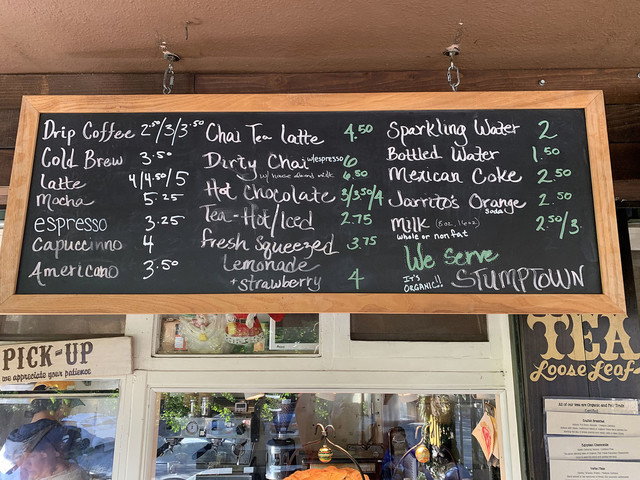 Drip Coffee 2.50/3/3.50
Cold Brew 3.50
latte 4/4.50/5
Mocha 5.25
espresso 3.25
Capuccinno 4
Americano 3.50
Chai Tea latte 4.50
Dirty Chai w/espresso 6
w/ house almond milk 6.50
Hot Chocolate 3/3.50/4
Tea-Hot/Iced 2.75
fresh Squeezed 3.75
Lemonade
+ strawberry 4
Sparkling Water 2
Bottled Water 1.50
Mexican Coke 2.50
Jarrito's Orange 2.50
soda
Milk (8oz, 16oz) 2.50/3.
whole or nonfat
We Serve
It's
ORGANIC!! STUMPTOWN
PICK-UP
we appreciate your patience
TEA
Loose Leaf